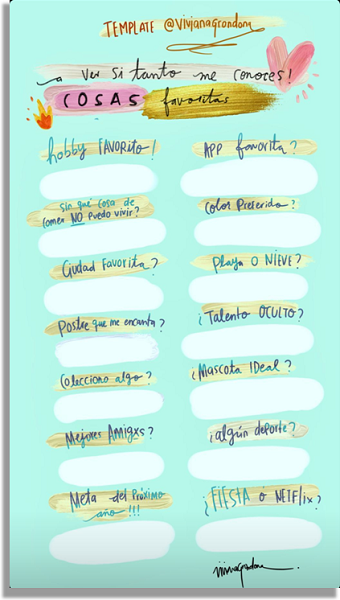 TEMPLATE @vivianagrondona
a ver si tanto me conoces!
COSAS favoritas
hobby FAVORITO!
APP favorita?
sin qué cosa de
comer NO puedo vivir?
Color Preferido?
Ciudad Favorita?
Playa O NIEVE?
Postre que me encanta?
¿Talento OCULTO?
Colecciono algo?
¿Mascota IDeal?
Mejores Amigxs?
¿algún deporte?
Meta del Próximo
año!!!
¿FIESTA o NETFlix?